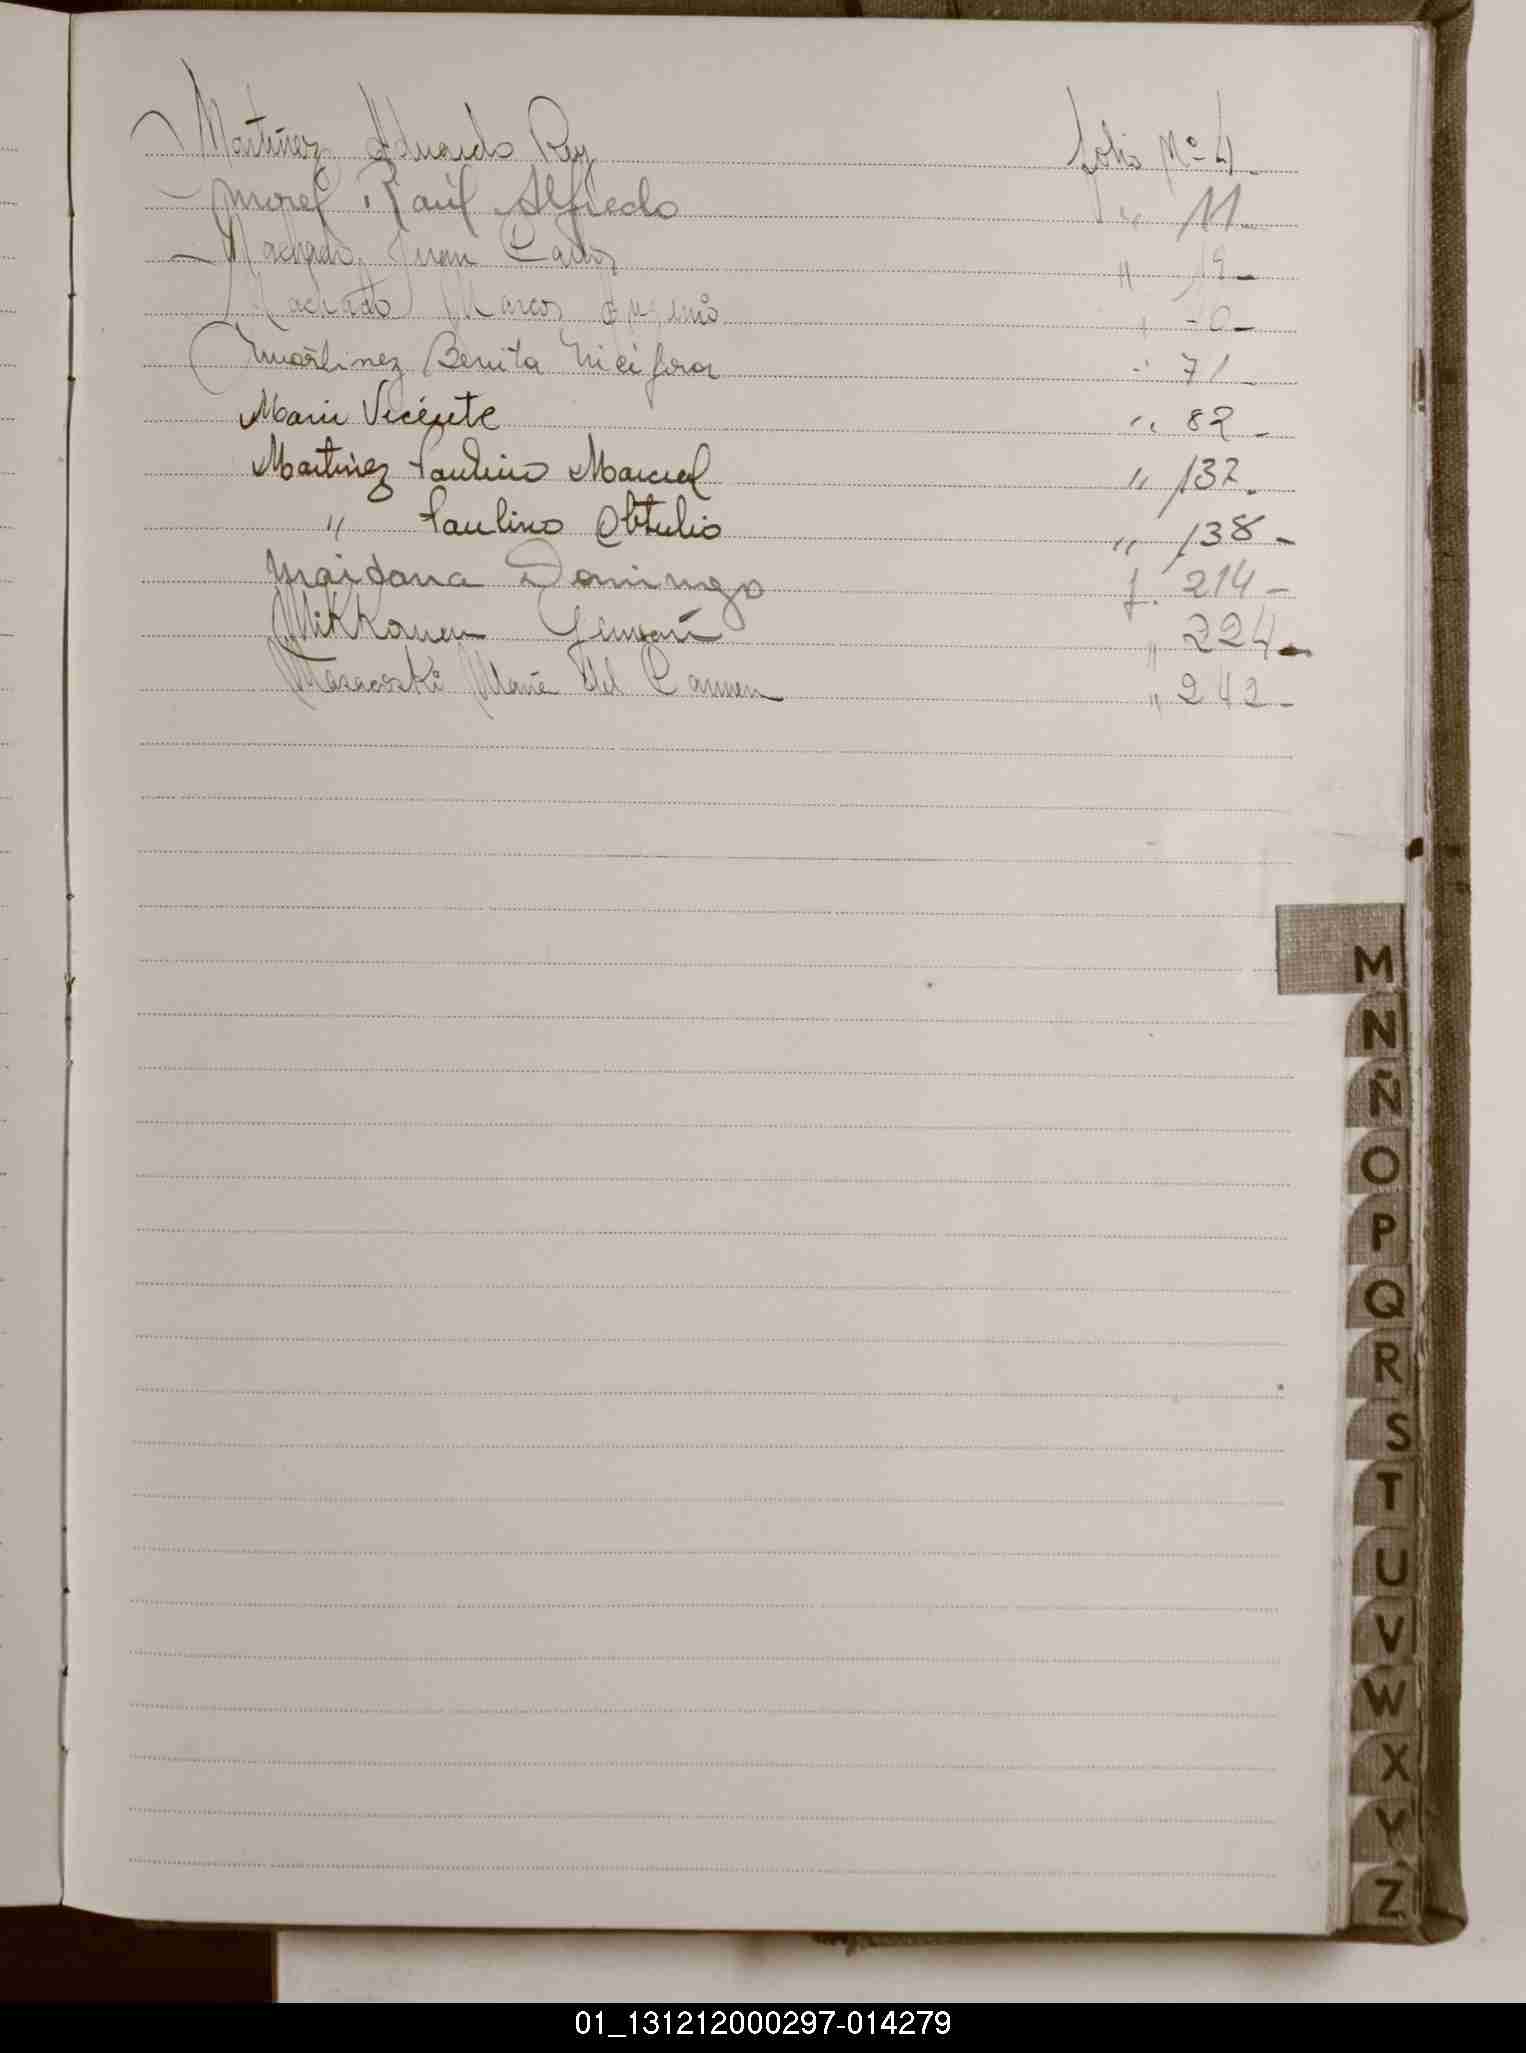 Martinez Eduardo Rey folio Nº 4
Morel Raúl Alfredo " 11
Machado Juan Carlos " 19
Machado Marcos
Martinez Benita Nicéfora " 71
Marin Vicente " 82
Martinez Paulino Marcial " 137
" Paulino Obtulio " 138
Maidana Domingo f. 214
Mikkonen " 224
Masacoski María Del Carmen " 242
M
N
Ñ
O
P
Q
R
S
T
U
V
W
X
Y
Z
01_131212000297-014279